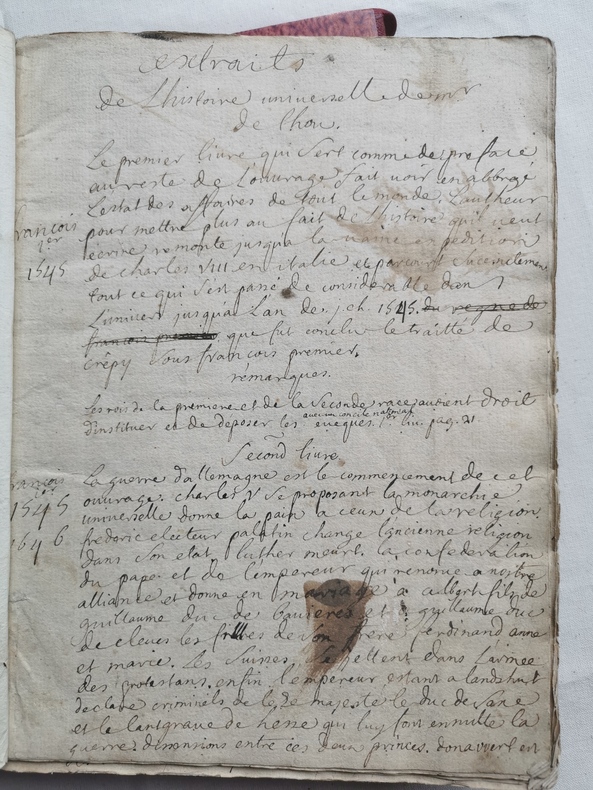 extraits
de l'histoire universelle de mr
de thou.
Le premier livre qui sert comme de preface
au reste de l'ouvrage fait voir en abbregé
l'estat des affaires de tout le monde. L'autheur
pour mettre plus au fait de l'histoire qu'il veut
françois
1er
ecrire remonte jusqu'a la vaine expedition
1545
de charles VIII en italie et parcourt succintement
tout ce qui s'est passé de considerable dans
l'univers jusqu'a l'an de j. ch. 1545. du regne de
françois premier que fut conclu le traitté de
crépy sous françois premier.
remarques.
Les rois de la premiere et de la seconde race avoient droit
d'instituer et de deposer les eveques. 1er liv. pag. 21
Second livre
françois
1er
La guerre d'allemagne est le commencement de cet
ouvrage. charles V se proposant la monarchie
1545
universelle donne la paix a ceux de la religion.
frederic electeur palatin change l'ancienne religion
1646
dans son etat. luther meurt. la confederation
du pape et de l'empereur qui renonce a nostre
alliance et donne en mariage a albert fils de
guillaume duc de bavieres et a guillaume duc
de cleves les filles de son frere ferdinand anne
et marie. les suisses se jettent dans l'armee
des protestans. enfin l'empereur estant a landshut
declare criminels de leze majesté le duc de saxe
et le lantgrave de hesse qui luy font ensuitte la
guerre. dissensions entre ces deux princes. donawert est